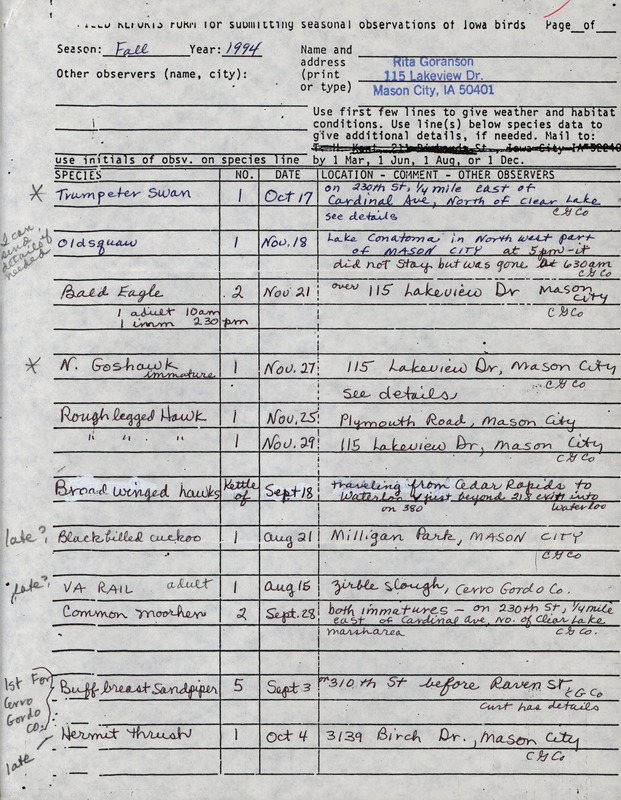 FIELD REPORTS FORM for submitting seasonal observations of Iowa birds Page__of__
Season: Fall Year: 1994 Name and address (print or type)
Rita Goranson
115 Lakeview Dr.
Mason City, IA 50401
Other observers (name, city):
Use first few lines to give weather and habitat
conditions. Use line(s) below species data to
give additional details, if needed. Mail to:
T. H. Kent, 211 Richards St., Iowa City IA 52240
use initials of obsv. on species line by 1 Mar, 1 Jun, 1 Aug, or 1 Dec.
SPECIES NO. DATE LOCATION - COMMENT - OTHER OBSERVERS
* Trumpeter Swan 1 Oct 17 on 230th St, 1/4 mile east of
Cardinal Ave, North of Clear Lake
see details CG Co
I can send details if needed
Oldsquaw 1 Nov. 18 Lake Conatoma in North west part
of MASON CITY at 5pm - it
did not stay but was gone at 630am
CG Co
Bald Eagle 2 Nov 21 over 115 Lakeview Dr Mason City
1 adult 10am
1 imm 230 pm CG Co
* N. Goshawk immature 1 Nov. 27 115 Lakeview Dr, Mason City
CG Co
see details
Rough legged Hawk 1 Nov. 25 Plymouth Road, Mason City
" " " 1 Nov. 29 115 Lakeview Dr, Mason City
CG Co
Broad winged hawks Kettle of Sept 18 traveling from Cedar Rapids to
Waterloo & just beyond 218 exit into Waterloo
on 380
late? Black billed cuckoo 1 Aug 21 Milligan Park, MASON CITY
CG Co
late? VA RAIL adult 1 Aug 15 Zirble Slough, Cerro Gordo Co.
Common moorhen 2 Sept. 28 both immatures - on 230th St, 1/4 mile
east of Cardinal Ave, No. of Clear Lake
marsh area CG Co.
1st For Cerro Gordo Co.
Buff breast Sandpiper 5 Sept 3 on 310th St before Raven St
CG Co
Curt has details
late Hermit thrush 1 Oct 4 3139 Birch Dr., Mason City
CG Co